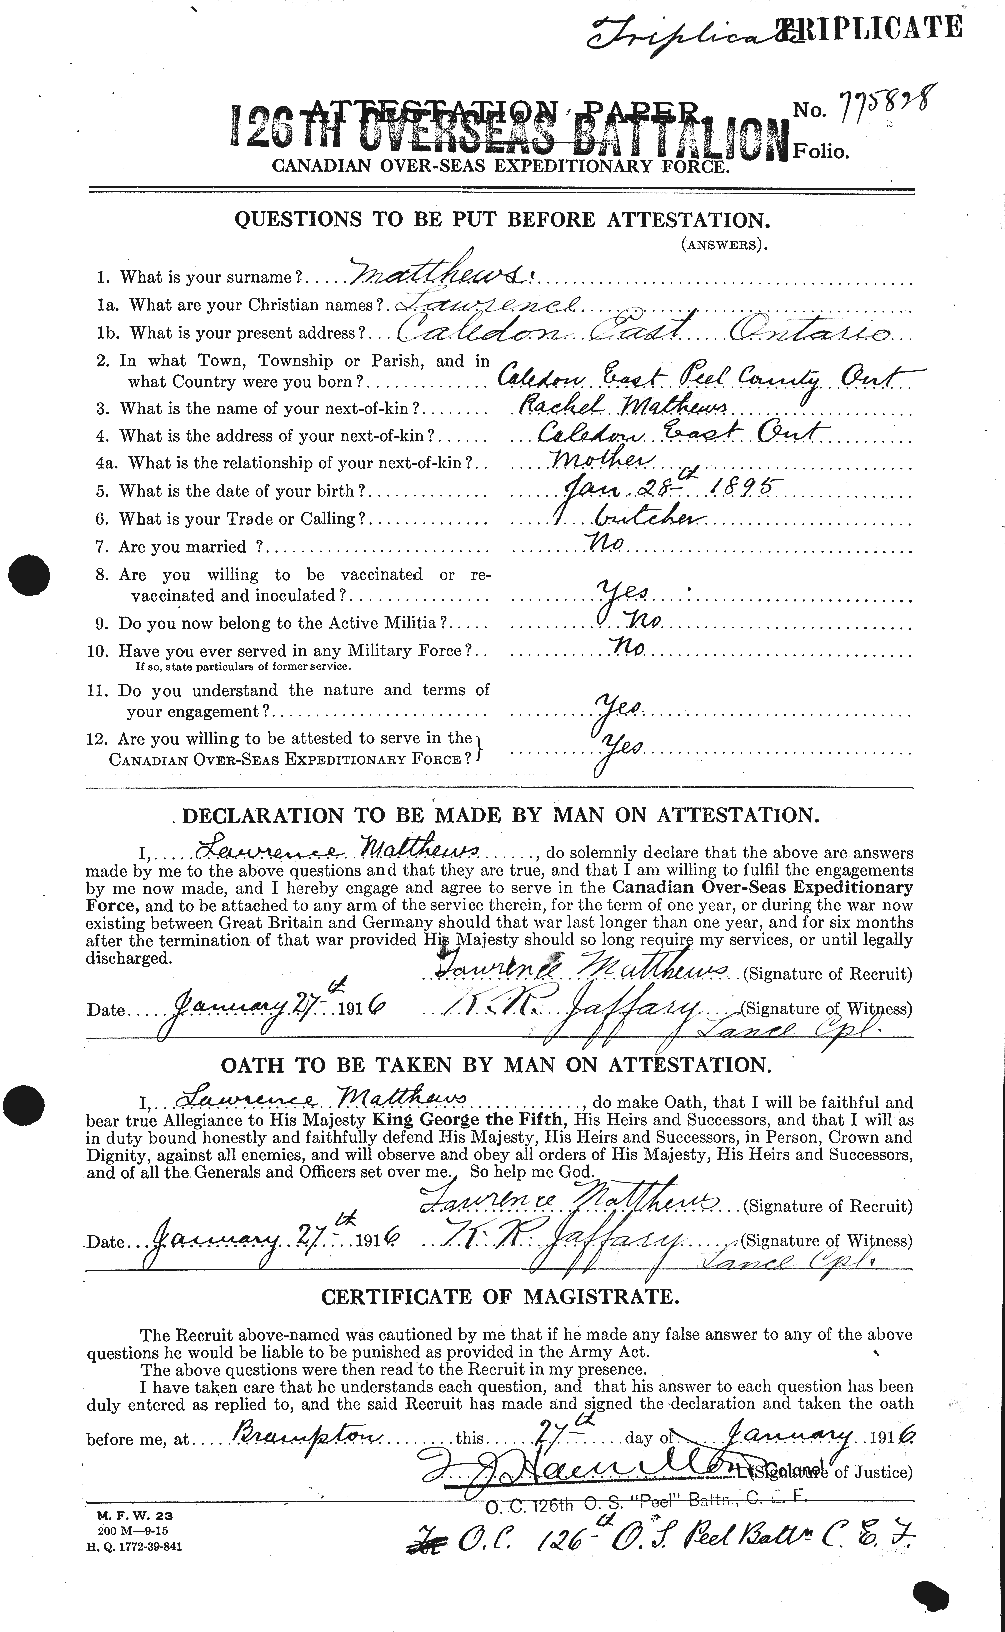 Triplicate TRIPLICATE
ATTESTATION PAPER. No. 775828
126TH OVERSEAS BATTALION
Folio.
CANADIAN OVER-SEAS EXPEDITIONARY FORCE.
QUESTIONS TO BE PUT BEFORE ATTESTATION.
(ANSWERS).
1. What is your surname?.....Matthews.
1a. What are your Christian names?.Lawrence
1b. What is your present address?...Caledon East Ontario
2. In what Town, Township or Parish, and in
what Country were you born?............. Caledon East Peel County Ont
3. What is the name of your next-of-kin?........ Rachel Mathews
4. What is the address of your next-of-kin?...... Caledon East Ont
4a. What is the relationship of your next-of-kin?.. Mother
5. What is the date of your birth?............. Jan 28th 1895
6. What is your Trade or Calling?............. butcher
7. Are you married ?........................ No
8. Are you willing to be vaccinated or re-
vaccinated and inoculated?................ Yes
9. Do you now belong to the Active Militia?..... No
10. Have you ever served in any Military Force?.. No
If so, state particulars of former service.
11. Do you understand the nature and terms of
your engagement?........................ Yes
12. Are you willing to be attested to serve in the
CANADIAN OVER-SEAS EXPEDITIONARY FORCE? Yes
DECLARATION TO BE MADE BY MAN ON ATTESTATION.
I,.....Lawrence Matthews......, do solemnly declare that the above are answers
made by me to the above questions and that they are true, and that I am willing to fulfil the engagements
by me now made, and I hereby engage and agree to serve in the Canadian Over-Seas Expeditionary
Force, and to be attached to any arm of the service therein, for the term of one year, or during the war now
existing between Great Britain and Germany should that war last longer than one year, and for six months
after the termination of that war provided His Majesty should so long require my services, or until legally
discharged.
Lawrence Matthews (Signature of Recruit)
Date.....January 27th 1916 K. R. Jaffary (Signature of Witness)
Lance Cpl.
OATH TO BE TAKEN BY MAN ON ATTESTATION.
I,...Lawrence Matthews............, do make Oath, that I will be faithful and
bear true Allegiance to His Majesty King George the Fifth, His Heirs and Successors, and that I will as
in duty bound honestly and faithfully defend His Majesty, His Heirs and Successors, in Person, Crown and
Dignity, against all enemies, and will observe and obey all orders of His Majesty, His Heirs and Successors,
and of all the Generals and Officers set over me. So help me God.
Lawrence Matthews (Signature of Recruit)
Date...January 27th 1916 K. R. Jaffary (Signature of Witness)
Lance Cpl.
CERTIFICATE OF MAGISTRATE.
The Recruit above-named was cautioned by me that if he made any false answer to any of the above
questions he would be liable to be punished as provided in the Army Act.
The above questions were then read to the Recruit in my presence.
I have taken care that he understands each question, and that his answer to each question has been
duly entered as replied to, and the said Recruit has made and signed the declaration and taken the oath
before me, at.....Brampton........this.....27th.....day of....January..1916
F J Hamilton Lt Colonel (Signature of Justice)
O. C. 126th O. S. "Peel" Battn., C. E. F.
M. F. W. 23
200 M—9-15
H. Q. 1772-39-841
O.C. 126th O.S. Peel Battn C. E. F.